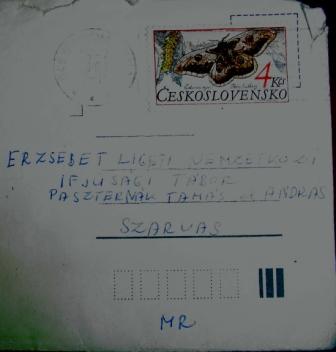 4 Kčs
ČESKOSLOVENSKO
ERZSÉBET LIGETI NEMZETKÖZI
IFJUSÁGI TÁBOR
PASZTERNÁK TAMÁS ANDRÁS
SZARVAS
MR